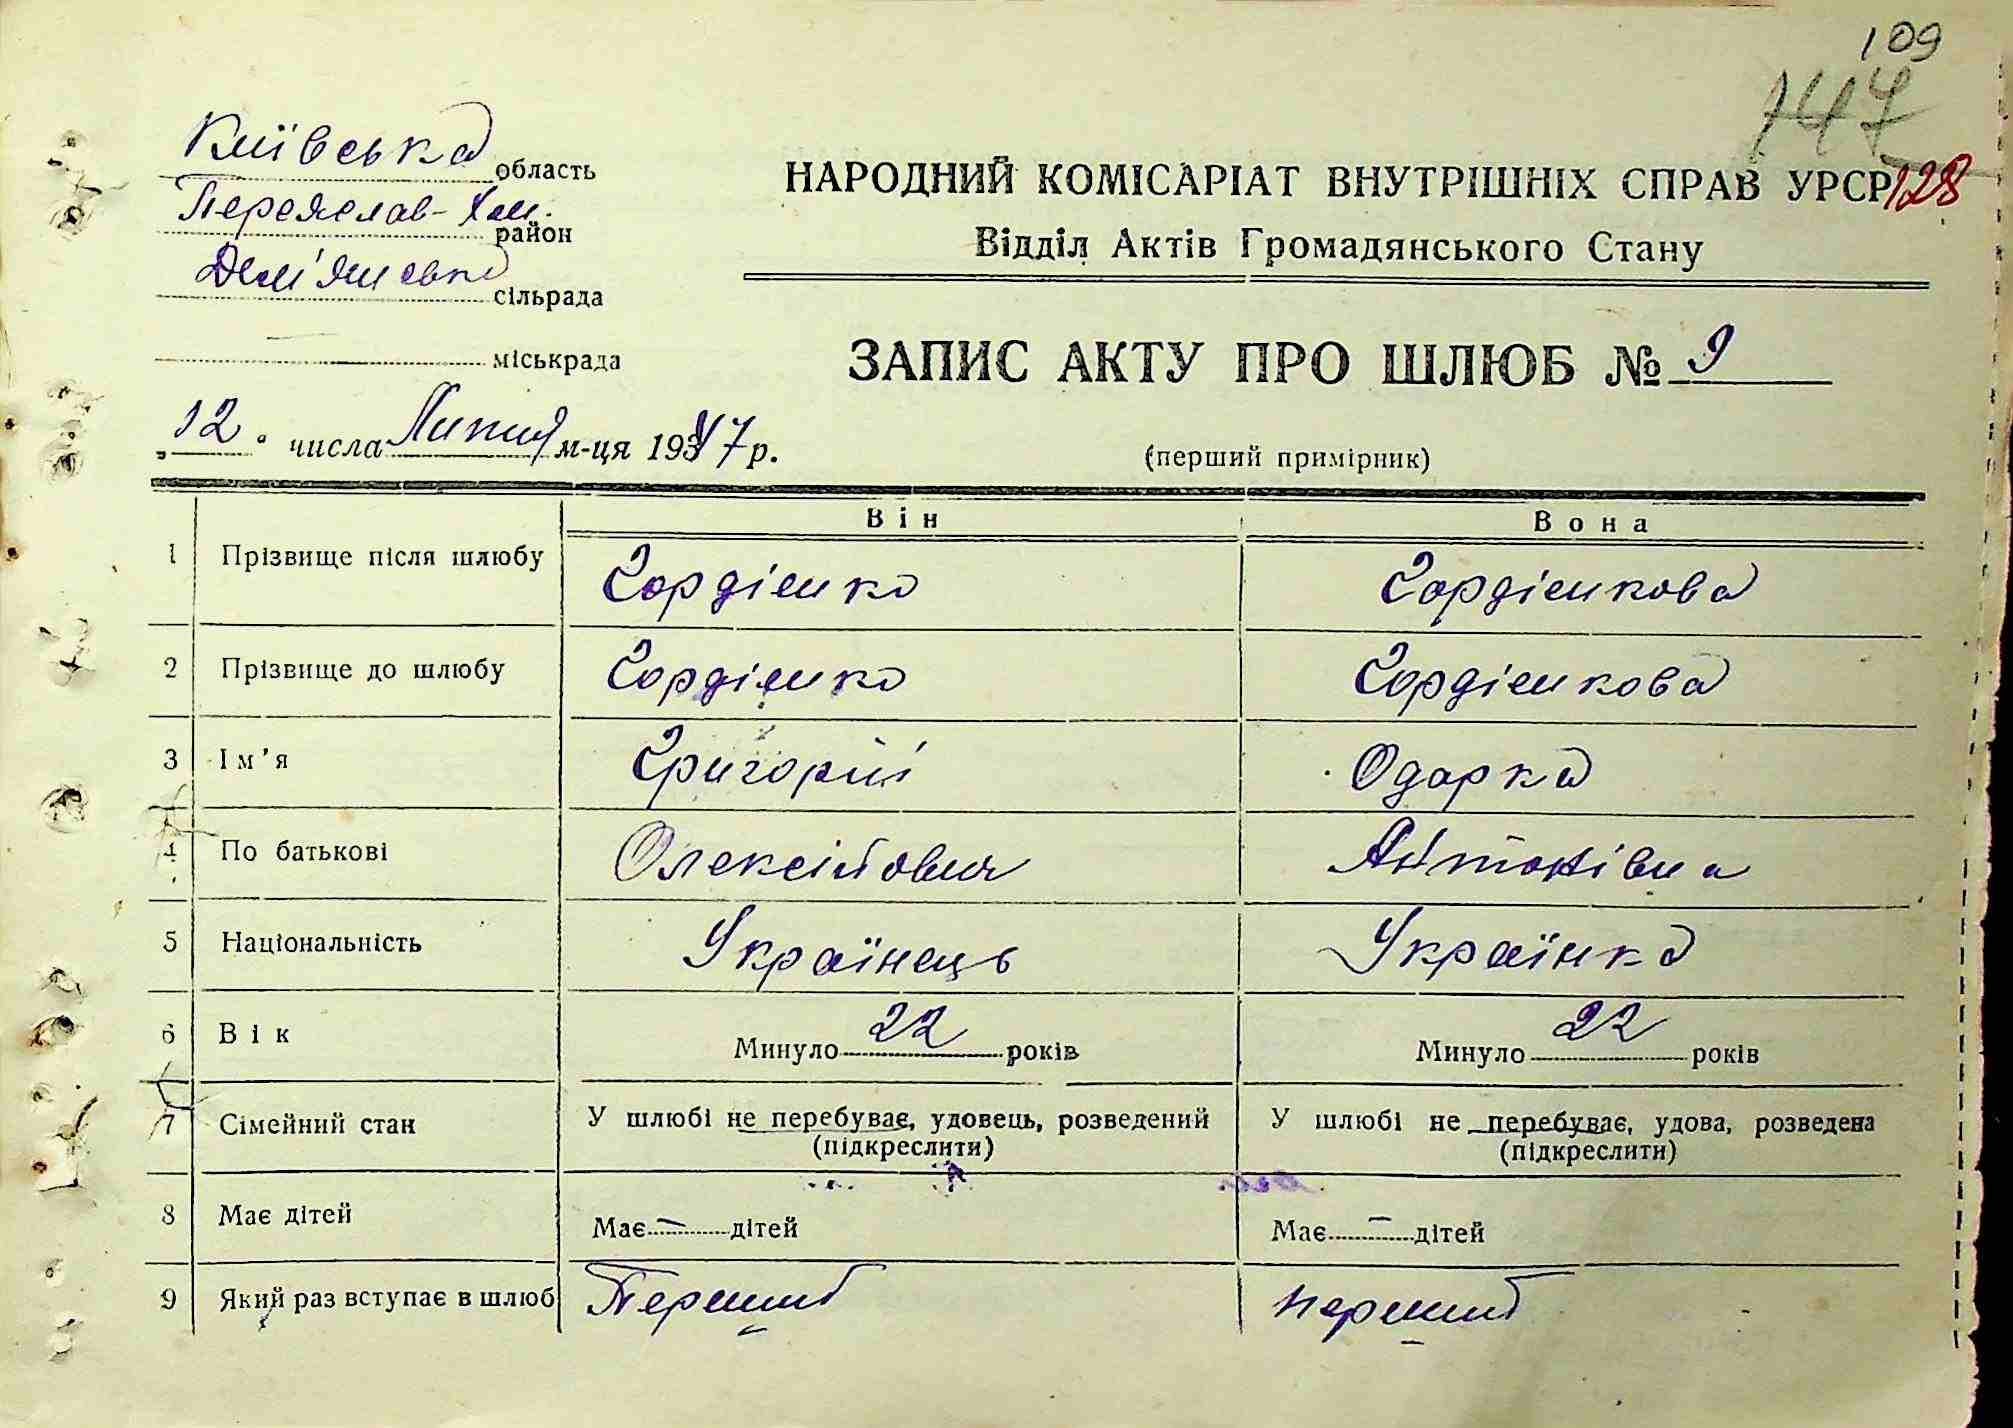 109
147
128
Київська область
Переяслав-Хм. район
Дем'янська сільрада
міськрада
НАРОДНИЙ КОМІСАРІАТ ВНУТРІШНІХ СПРАВ УРСР
Відділ Актів Громадянського Стану
ЗАПИС АКТУ ПРО ШЛЮБ № 9
„12" числа Липня м-ця 1947 р.
(перший примірник)
Він Вона
1 Прізвище після шлюбу Гордієнко Гордієнкова
2 Прізвище до шлюбу Гордієнко Гордієнкова
3 Ім'я Григорій Одарка
4 По батькові Олексійович Антонівна
5 Національність Українець Українка
6 Вік Минуло 22 років Минуло 22 років
7 Сімейний стан У шлюбі не перебуває, удовець, розведений У шлюбі не перебуває, удова, розведена
(підкреслити) (підкреслити)
8 Має дітей Має — дітей Має — дітей
9 Який раз вступає в шлюб Перший перший